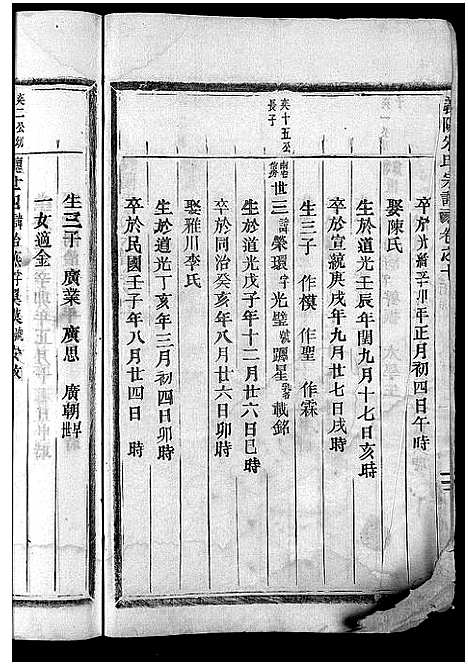 義陽朱氏宗譜 卷之
卒於光緒辛卯年正月初四日午時
娶陳氏
生於道光壬辰年閏九月十七日亥時
卒於宣統庚戌年九月廿七日戌時
生三子 作模 作聖 作霖
奕十五公長子 世三 諱榮環字光璧號躔星 載銘
生於道光戊子年十二月廿六日巳時
卒於同治癸亥年八月廿六日卯時
娶雅川李氏
生於道光丁亥年三月初四日卯時
卒於民國壬子年八月廿四日 時
生三子 廣業 廣思 廣朝
一女適金
奕二公 世四